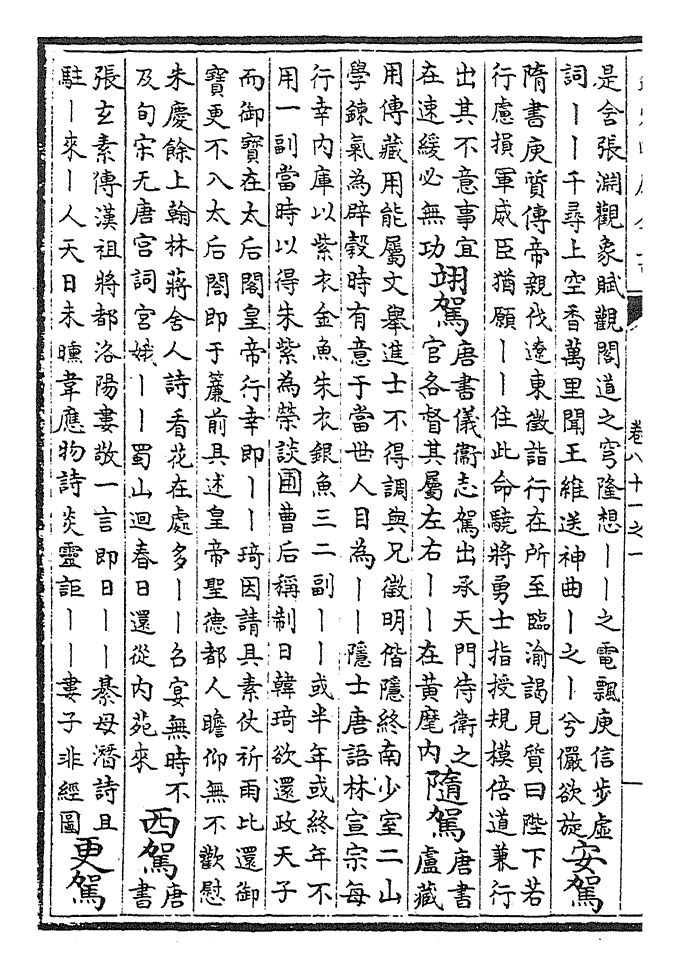 卷八十一之一
是舍張淵觀象賦觀閣道之穹隆想丨丨之電飄庾信步虛
詞丨丨千尋上空香萬里聞王維送神曲丨之丨兮儼欲旋
安駕
隋書庾質傳帝親伐遼東徵詣行在所至臨渝謁見質曰陛下若
行慮損軍威臣猶願丨丨住此命驍將勇士指授規模倍道兼行
出其不意事宜
在速緩必無功
翊駕
唐書儀衞志駕出承天門侍衛之
官各督其屬左右丨丨在黃麾內
隨駕
唐書
盧藏
用傳藏用能屬文舉進士不得調與兄徵明偕隱終南少室二山
學鍊氣為辟穀時有意于當世人目為丨丨隱士唐語林宣宗每
行幸內庫以紫衣金魚朱衣銀魚三二副丨丨或半年或終年不
用一副當時以得朱紫為榮談圃曹后稱制日韓琦欲還政天子
而御寶在太后閣皇帝行幸即丨丨琦因請具素仗祈雨比還御
寶更不入太后閤即于簾前具述皇帝聖德都人瞻仰無不歡慰
朱慶餘上翰林蔣舍人詩看花在處多丨丨召宴無時不
及旬宋无唐宮詞宮娥丨丨蜀山迴春日還從內苑來
西駕
唐
書
張玄素傳漢祖將都洛陽婁敬一言即日丨丨綦毋潛詩且
駐丨來丨人天日未曛韋應物詩炎靈詎丨丨婁子非經圖
更駕